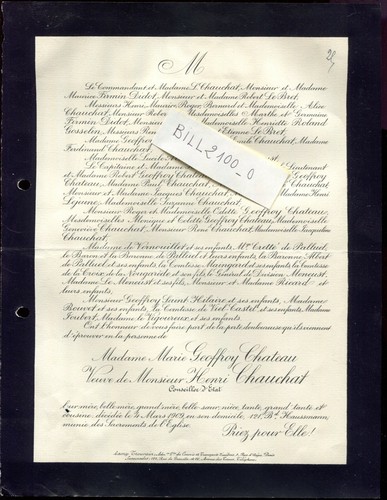 M
Le Commandant et Madame L. Chauchat, Monsieur et Madame
Maurice Firmin Didot, Monsieur et Madame Robert Le Bret,
Messieurs Henri, Maurice, Roger, Bernard et Mademoiselle Alise
Chauchat, Monsieur Mesdemoiselles Marthe et Germaine
Firmin Didot, Mademoiselle Henriette Roland
Gosselin, Messieurs Etienne Le Bret,
Madame Geoffroy Chauchat, Madame
Ferdinand Chauchat,
Mademoiselle
BILL2100_0
Le Capitaine et Madame Lieutenant
et Madame Robert Geoffroy Château, Geoffroy
Château, Madame Paul Chauchat,
Monsieur et Madame Jacques Chauchat, Madame Henri
Lejeune, Mademoiselle Suzanne Chauchat,
Monsieur Roger et Mademoiselle Odette Geoffroy Château,
Mesdemoiselles Monique et Colette Geoffroy Château, Mademoiselle
Geneviève Chauchat, Monsieur René Chauchat, Mademoiselle Jacqueline
Chauchat,
Madame de Vernouillet et ses enfants, Mme Cretté de Palluel,
le Baron et la Baronne de Palluel et leurs enfants, la Baronne Albert
de Palluel et ses enfants, la Comtesse Maingard et ses enfants, la Comtesse
de la Croix de la Vougarède et son fils, le Général de Division Menoust,
Madame Le Menoust et ses fils, Monsieur et Madame Ricard et
leurs enfants,
Monsieur Geoffroy Saint Hilaire et ses enfants, Madame
Bouvet et ses enfants, la Comtesse de Viel-Castel et ses enfants, Madame
Joubert, Madame L. Vigoureux et ses enfants.
Ont l'honneur de vous faire part de la perte douloureuse qu'ils viennent
d'éprouver en la personne de
Madame Marie Geoffroy Château
Veuve de Monsieur Henri Chauchat
Conseiller d'Etat
leur mère, belle-mère, grand'mère, belle-sœur, nièce, tante, grand'tante et
cousine, décédée le 4 Mars 1909, en son domicile, 121, Bd. Haussmann,
munie des Sacrements de l'Eglise.
Priez pour Elle!